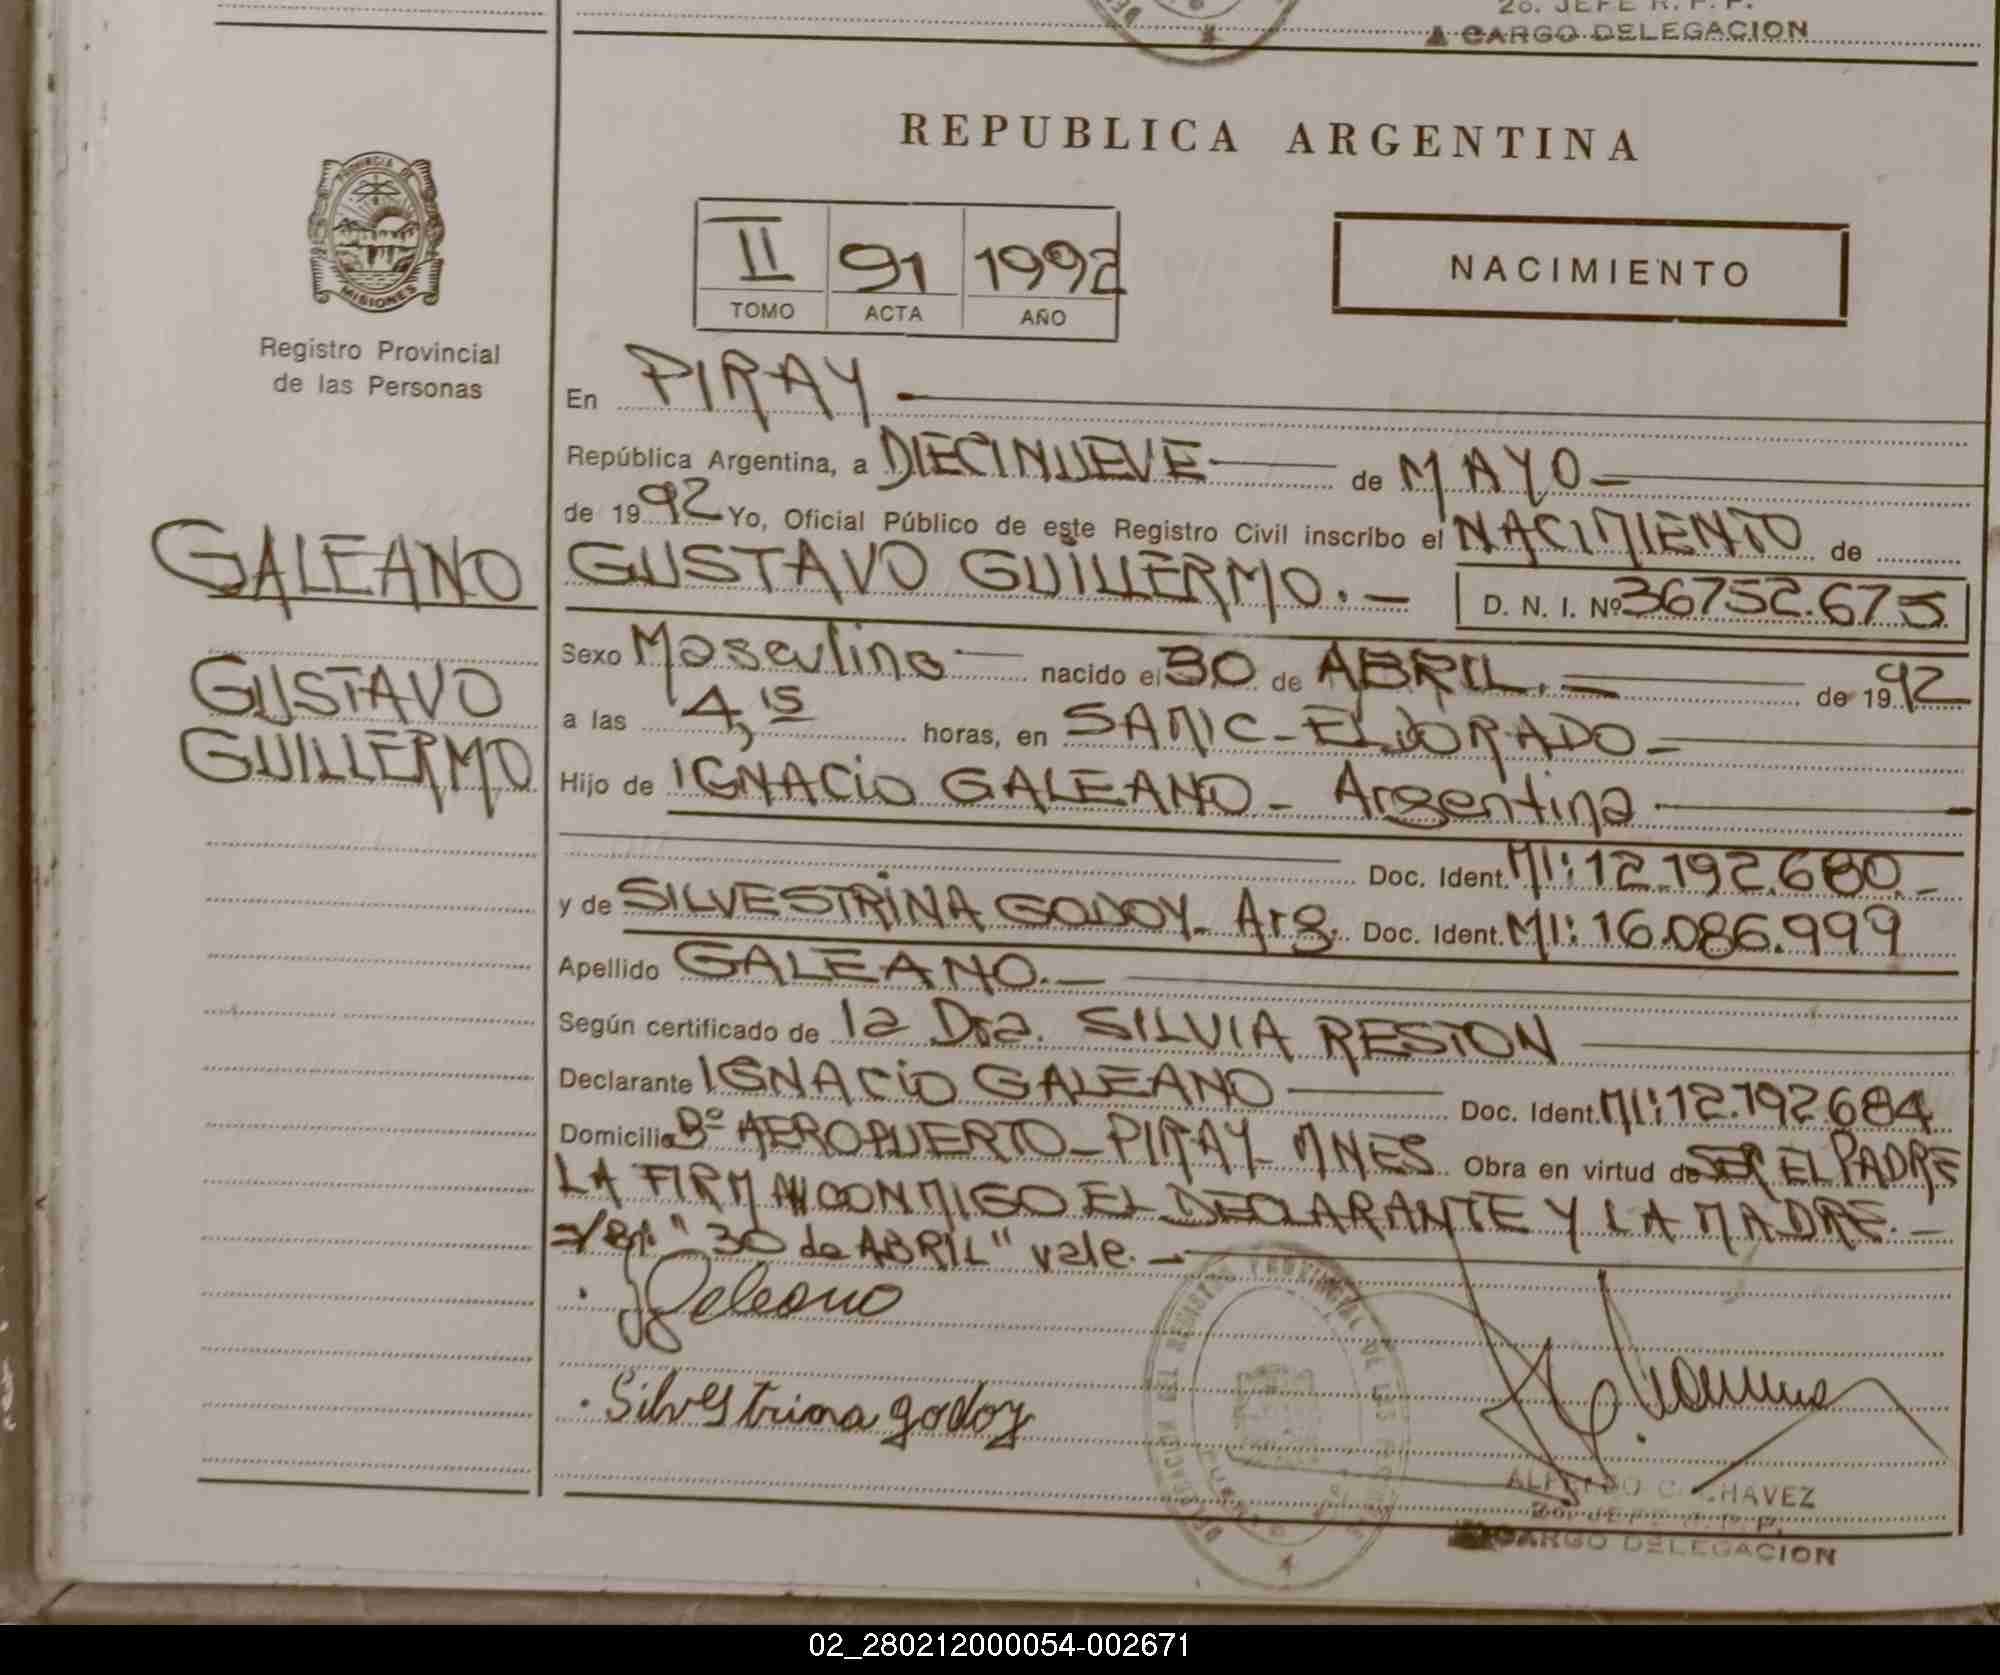 2o. JEFE R. P. P.
A CARGO DELEGACION
REPUBLICA ARGENTINA
PROVINCIA DE
MISIONES
Registro Provincial
de las Personas
II 91 1992
TOMO ACTA AÑO
NACIMIENTO
En PIRAY
República Argentina, a DIECINUEVE de MAYO
de 1992 Yo, Oficial Público de este Registro Civil inscribo el NACIMIENTO de
GALEANO
GUSTAVO GUILLERMO.-
D. N. I. Nº 36752.675
GUSTAVO
GUILLERMO
Sexo Masculino nacido el 30 de ABRIL. de 1992
a las 4,15 horas, en SAMIC-ELDORADO-
Hijo de IGNACIO GALEANO - Argentina
Doc. Ident. MI: 12.192.680.-
y de SILVESTRINA GODOY- Arg. Doc. Ident. MI: 16.086.999
Apellido GALEANO.-
Según certificado de la Dra. SILVIA RESTON
Declarante IGNACIO GALEANO Doc. Ident. MI: 12.192.684
Domicilio Bº AEROPUERTO-PIRAY- MNES Obra en virtud de SER EL PADRE
LA FIRMAN CONMIGO EL DECLARANTE Y LA MADRE.-
"30 de ABRIL" vale.-
Galeano
Silvestrina godoy
DELEGACION DEL REGISTRO PROVINCIAL DE LAS
ALFREDO C. CHAVEZ
2o. JEFE R. P. P.
A CARGO DELEGACION
02_280212000054-002671